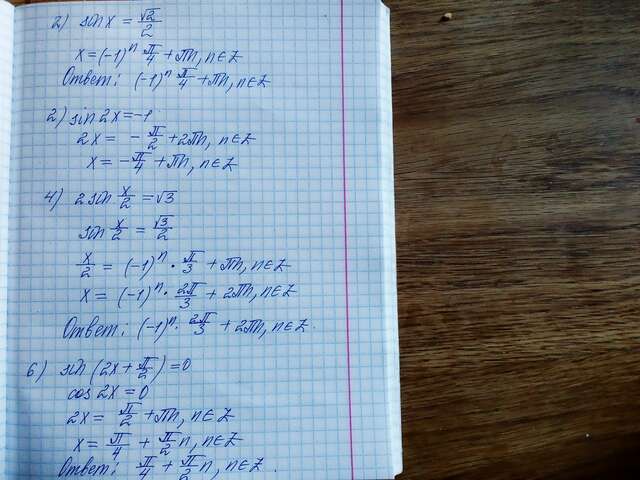 2) sin x = √2/2
x = (-1)ⁿ π/4 + πn, n ∈ Z
Ответ: (-1)ⁿ π/4 + πn, n ∈ Z
2) sin 2x = -1
2x = - π/2 + 2πn, n ∈ Z
x = - π/4 + πn, n ∈ Z
4) 2 sin x/2 = √3
sin x/2 = √3/2
x/2 = (-1)ⁿ · π/3 + πn, n ∈ Z
x = (-1)ⁿ · 2π/3 + 2πn, n ∈ Z
Ответ: (-1)ⁿ · 2π/3 + 2πn, n ∈ Z.
6) sin (2x + π/2) = 0
cos 2x = 0
2x = π/2 + πn, n ∈ Z
x = π/4 + π/2 n, n ∈ Z
Ответ: π/4 + π/2 n, n ∈ Z.